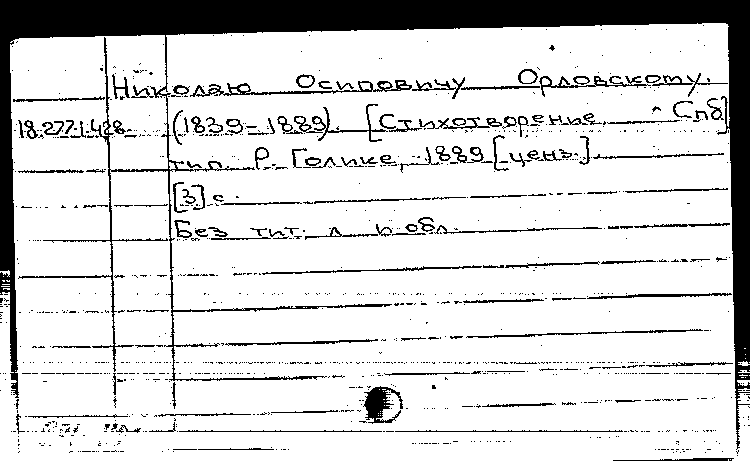 Николаю Осиповичу Орловскому.
18.277.1.428 (1839-1889). [Стихотворение. Спб]
тип. Р. Голике, 1889 [ценз.].
[3] с.
Без тит. л. и обл.